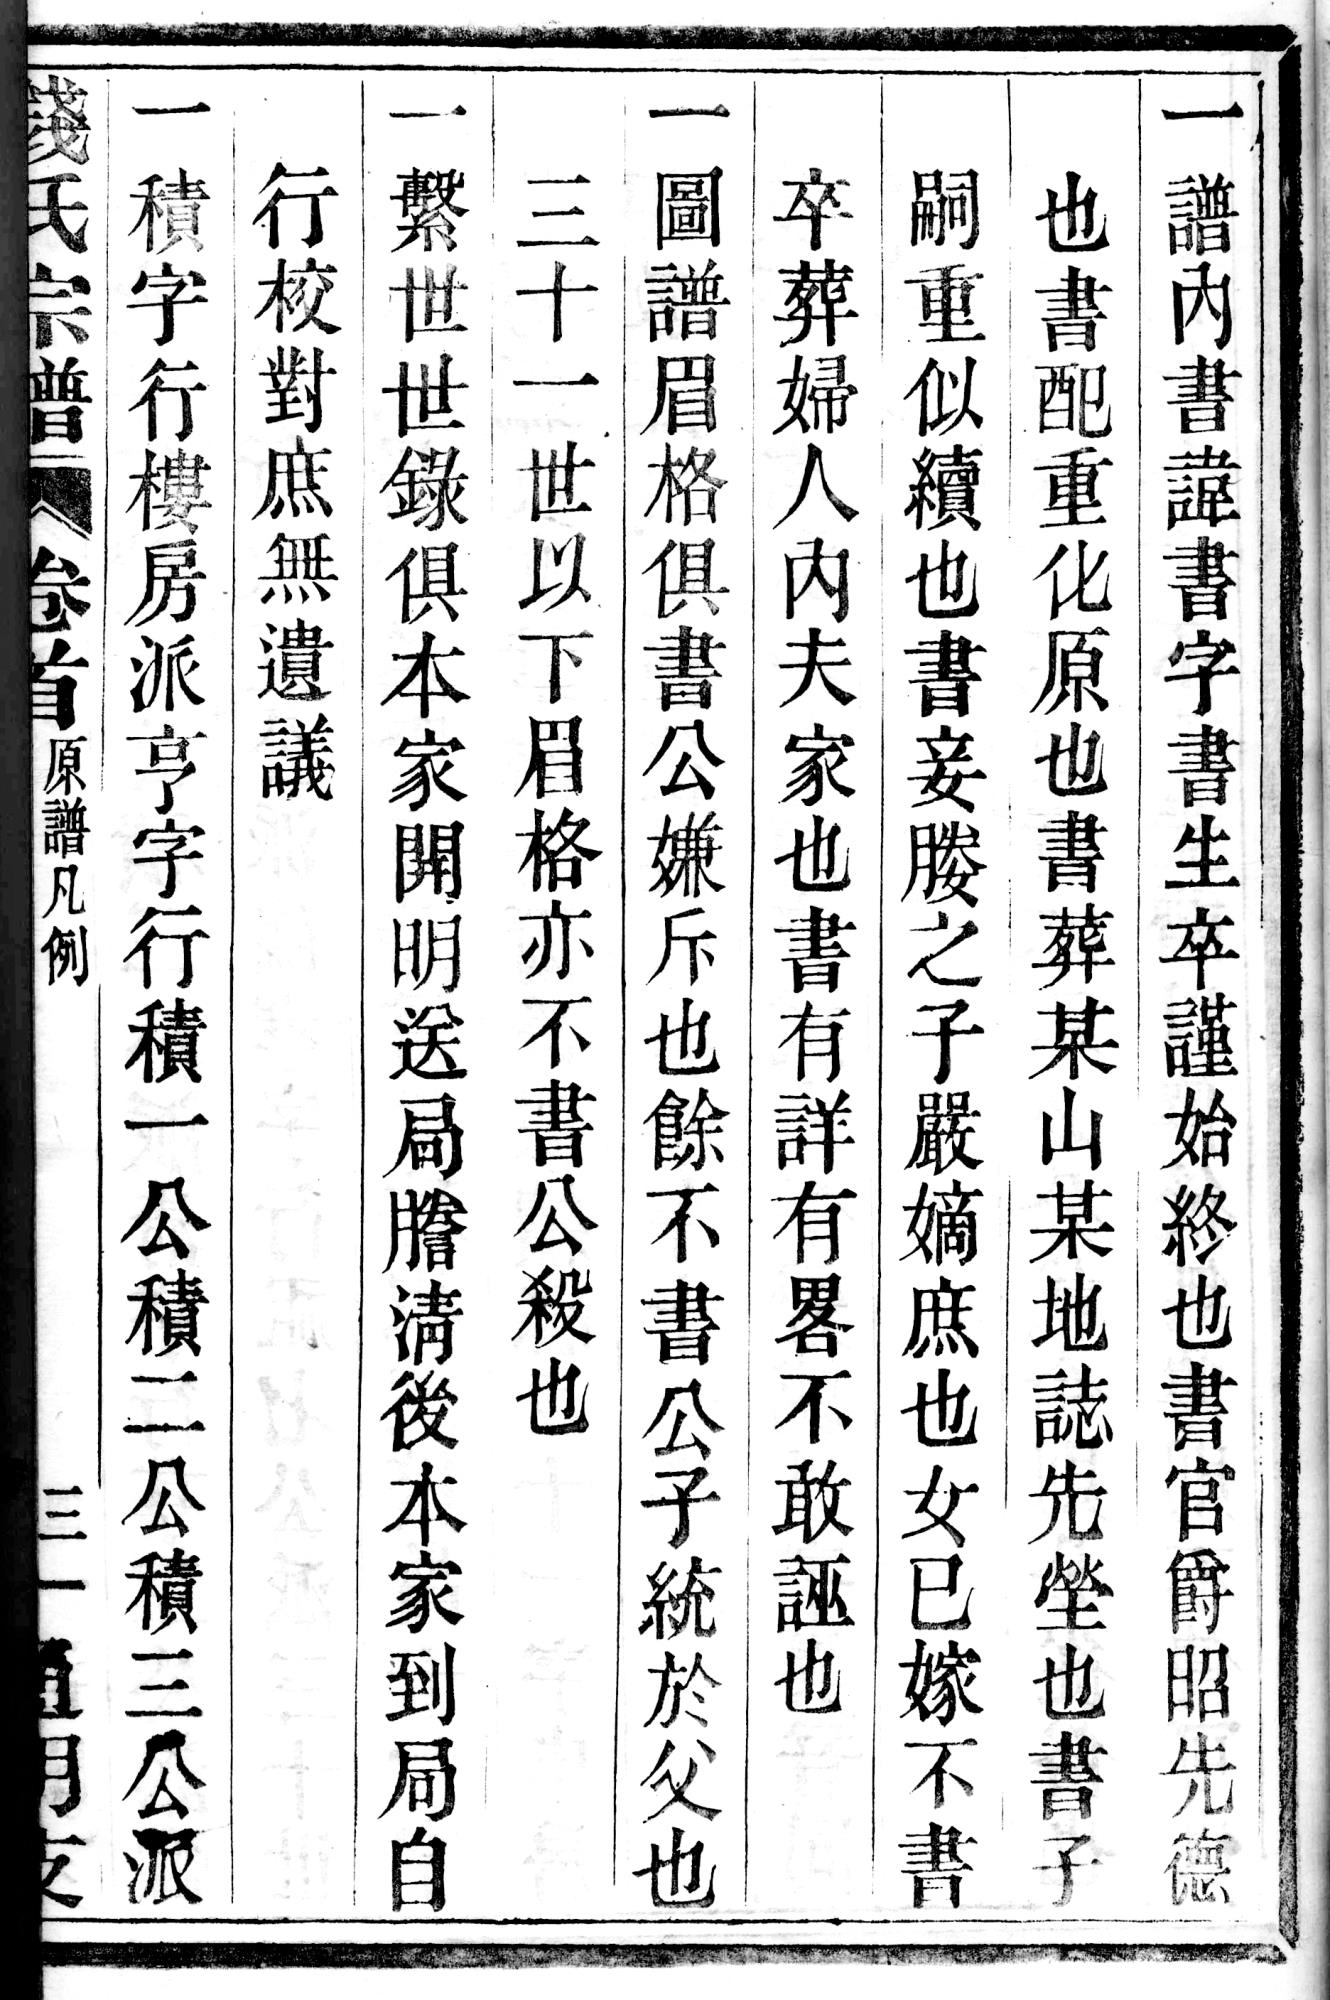 一譜內書諱書字書生卒謹始終也書官爵昭先德
也書配重化原也書葬某山某地誌先塋也書子
嗣重似續也書妾媵之子嚴嫡庶也女已嫁不書
卒葬婦人內夫家也書有詳有畧不敢誣也
一圖譜眉格俱書公嫌斥也餘不書公子統於父也
三十一世以下眉格亦不書公殺也
一繫世世錄俱本家開明送局謄淸後本家到局自
行校對庶無遺議
一積字行樓房派亨字行積一公積二公積三公派
錢氏宗譜 卷首 原譜凡例 三一 通明支